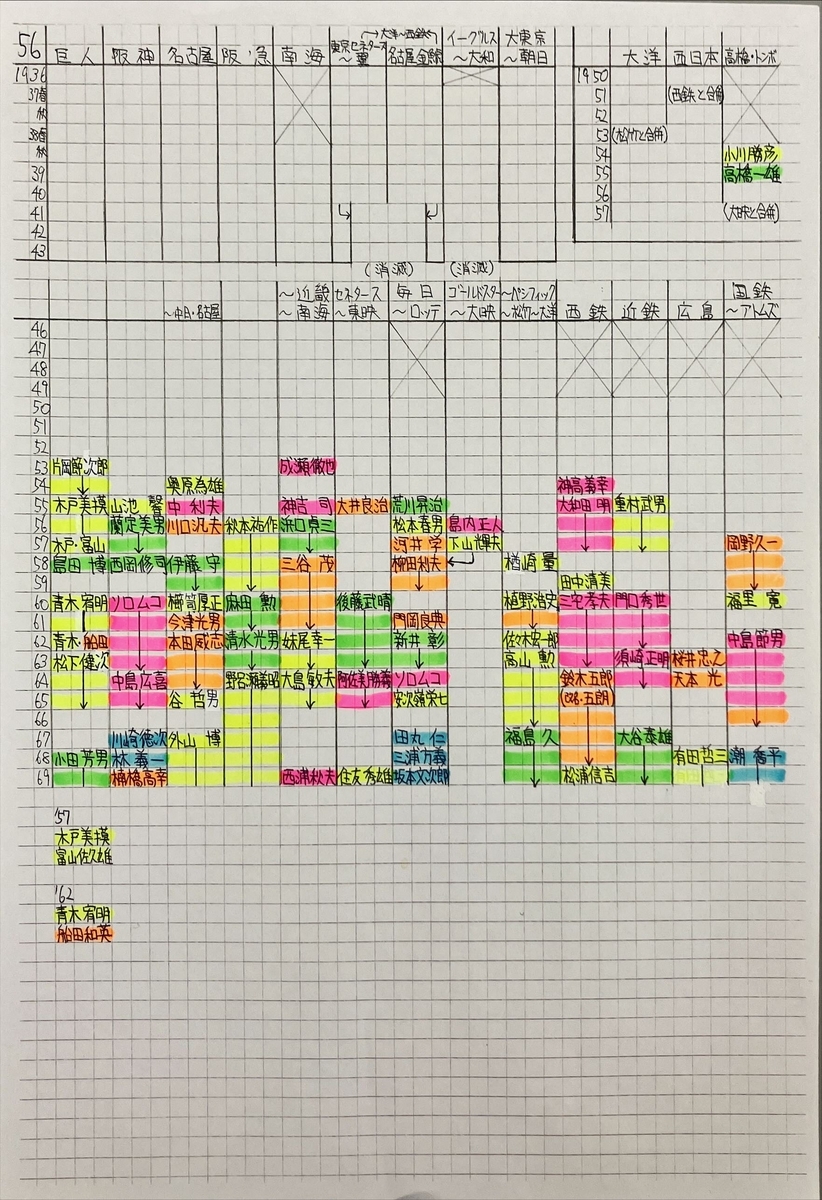 56 巨人 阪神 名古屋 阪急 南海 東京セネタース～翼 大洋～西鉄 名古屋金鯱 イーグルス～大和 大東京～朝日 大洋 西日本 高橋・トンボ
1936 1950
37春 51 (西鉄と合併)
秋 52
38春 53 (松竹と合併)
秋 54 小川勝彦
39 55 高橋一雄
40 56
41 57 (大映と合併)
42
43
(消滅) (消滅)
～中日・名古屋 ～近畿～南海 セネタース～東映 毎日～ロッテ ゴールドスター～大映 ～パシフィック～松竹～大洋 西鉄 近鉄 広島 国鉄～アトムズ
46
47
48
49
50
51
52
53 片岡節次郎 成瀬徹也
54 奥原為雄 神高義幸
55 木戸美摸 山池馨 中利夫 神吉司 大井良治 荒川昇治 大和田明 重村武男
56 蘭定美男 川口汎夫 秋本祐作 浜口貞三 松本春男 島内正人
57 木戸・富山 河井学 下山輝夫 岡野久一
58 島田博 西岡修司 伊藤守 三谷茂 柳田利夫 楢崎量
59 田中清美
60 青木宥明 ソロムコ 麻田勲 後藤武晴 植野浩安 三宅孝夫 門口秀世 福里寛
61 今津光男 門岡良典
62 青木・船田 本田威志 清水光男 妹尾幸一 新井彰 佐々木宏郎 中島節男
63 松下健次 高山勲 須崎正明 桜井忠之
64 中島広喜 野呂瀬義昭 大島敏夫 阿佐美勝義 ソロムコ 鈴木五郎 天本光
65 谷哲男 安次嶺栄七
66
67 川崎徳次 外山博 田丸仁 福島久 大谷泰雄
68 小田芳男 林義一 三浦方義 有田哲三 潮喬平
69 楠橋高幸 西浦秋夫 住友秀雄 坂本文次郎 松浦信吉
'57
木戸美摸
富山佐久雄
'62
青木宥明
船田和英